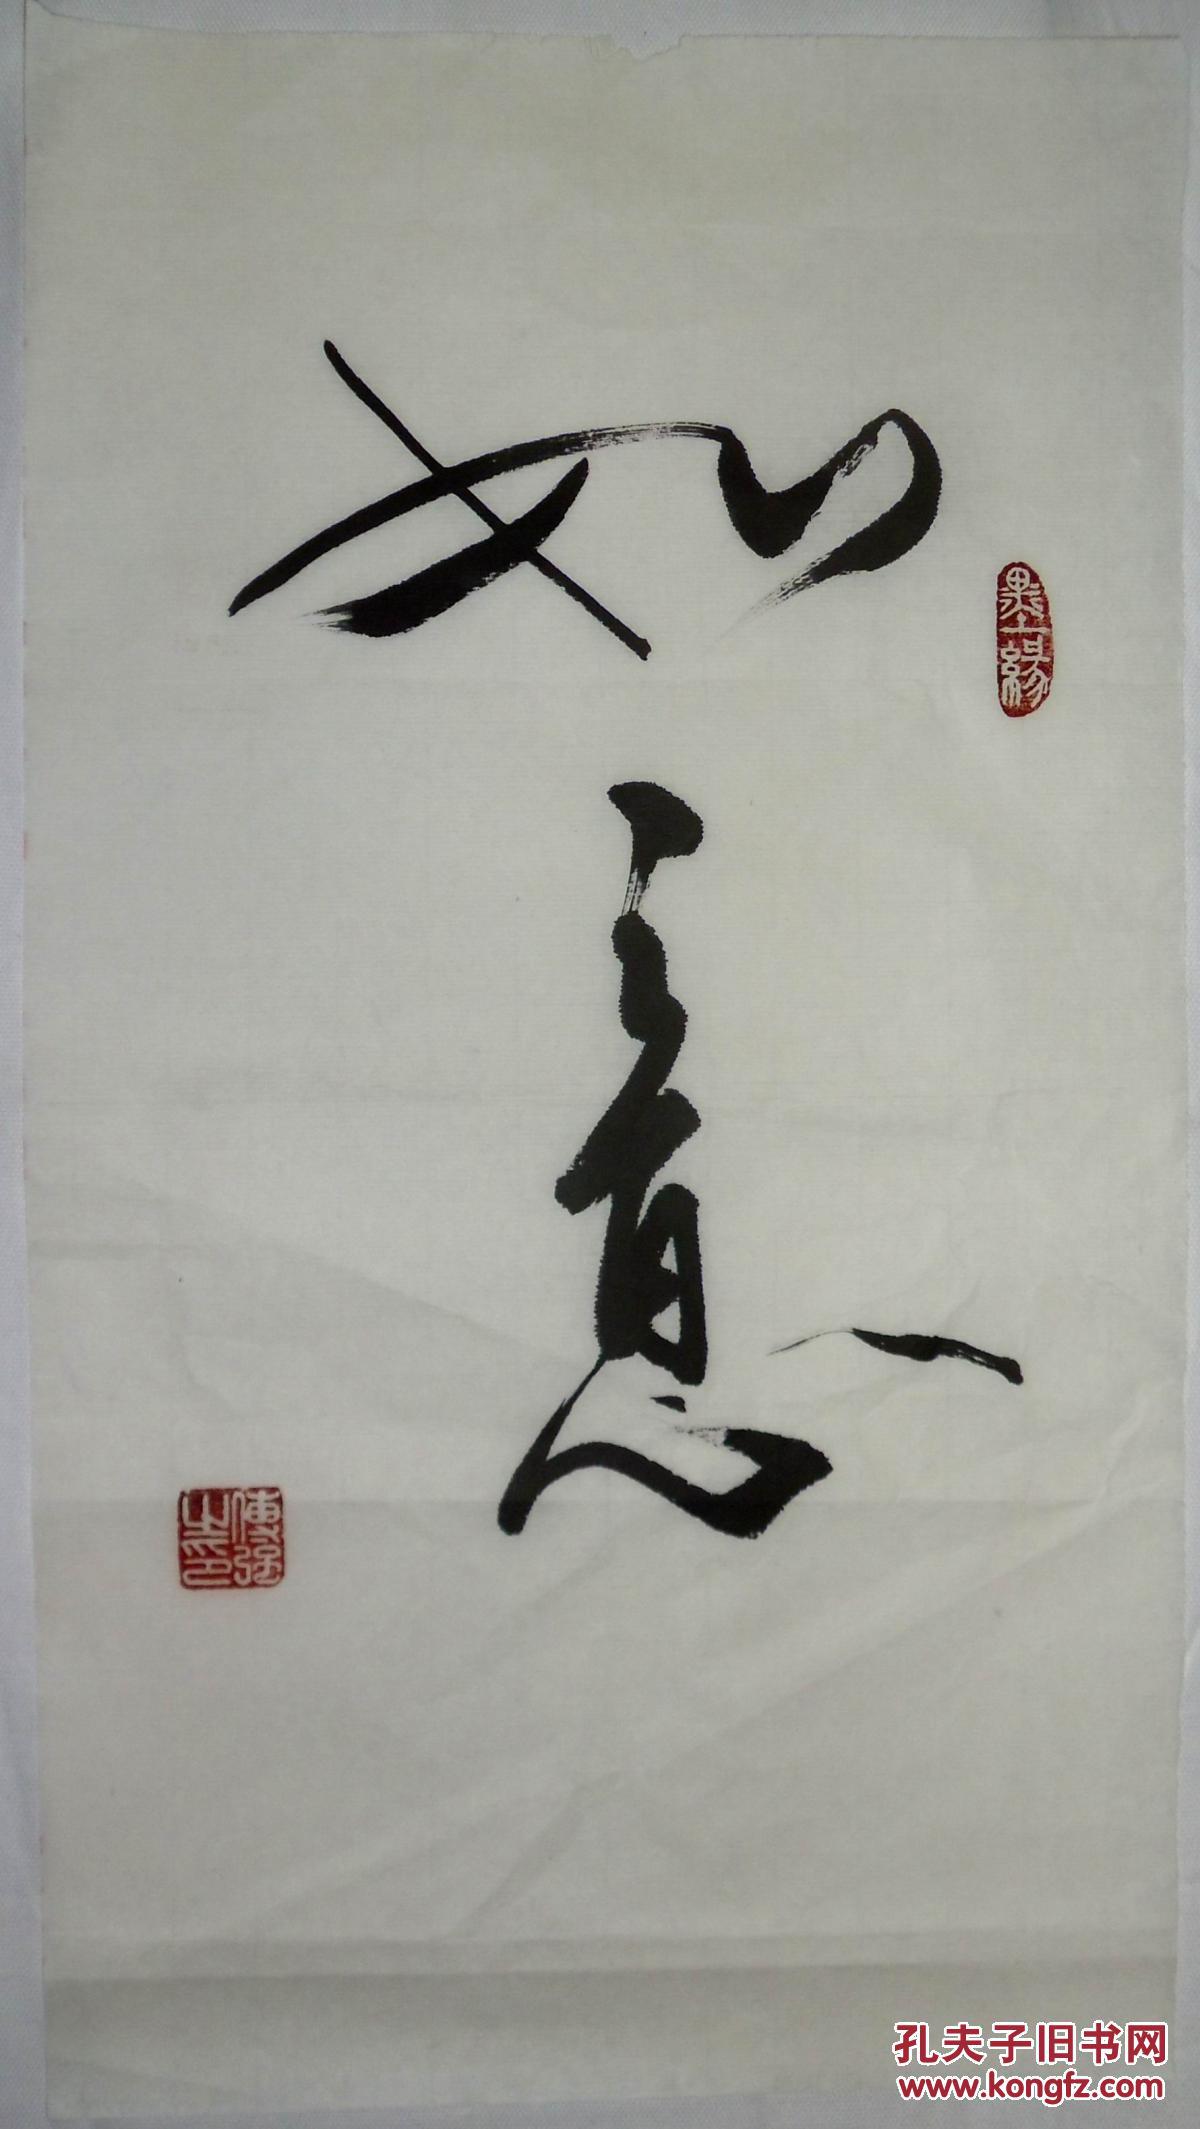 如意
墨缘
傅强之印
孔夫子旧书网
www.kongfz.com